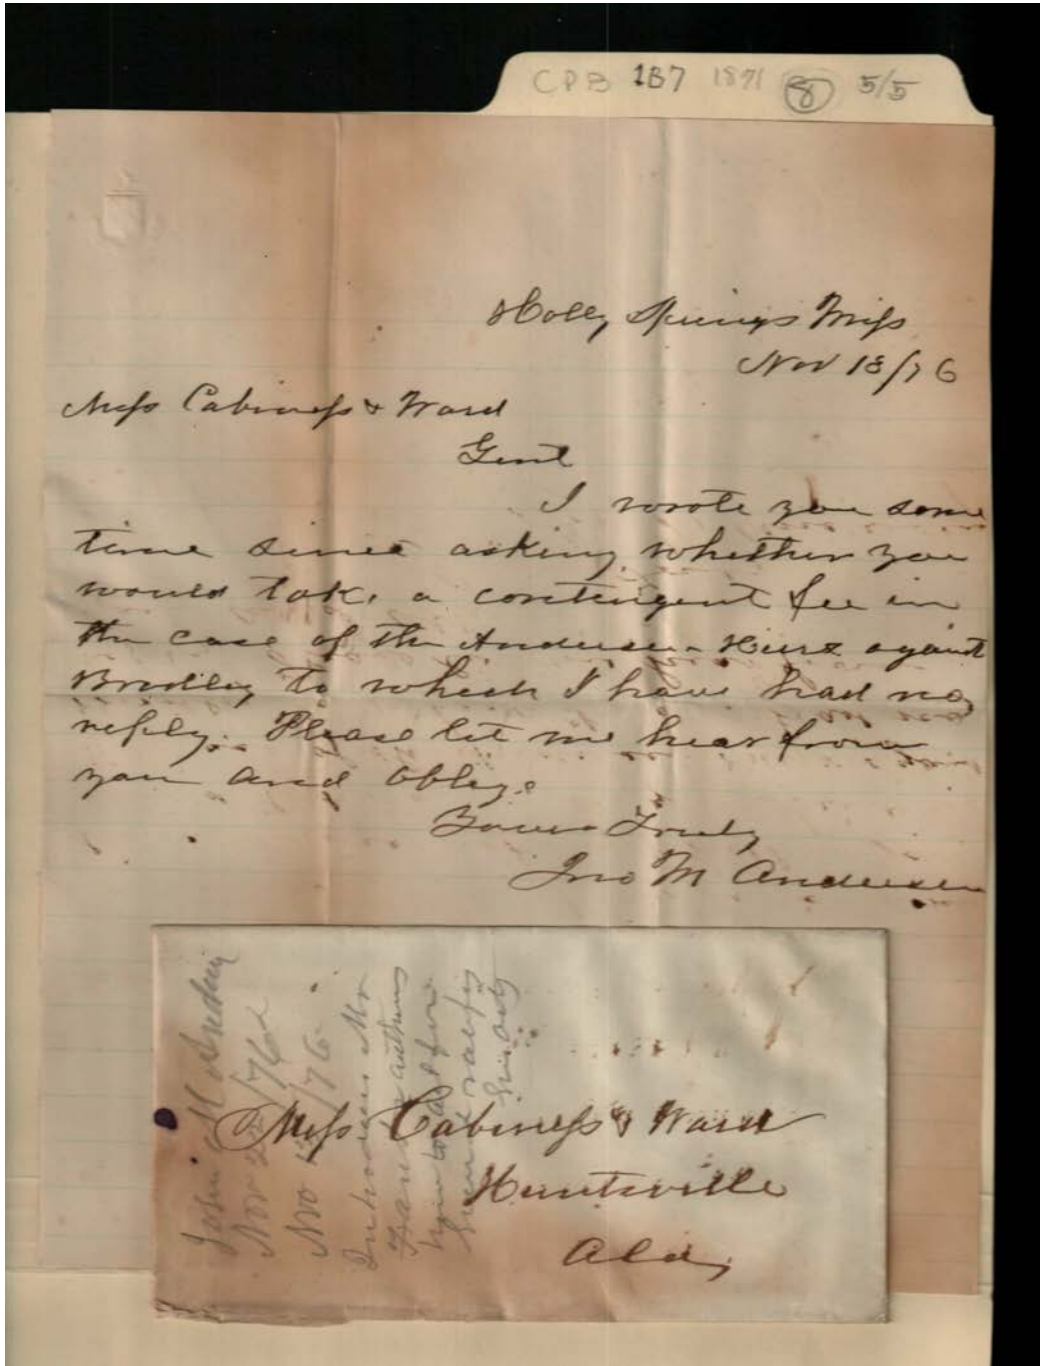 CPB 1B7 1871 8 5/5
Holly Springs Miss
Nov 18/76
Mess Cabiness & Ward
Gent
I wrote you some
time since asking whether you
would take a contingent fee in
the case of the Anderson Heirs against
Bradley to which I have had no
reply. Please let me hear from
you and oblige
Yours Truly
Jno M Anderson
Mess Cabiness & Ward
Huntsville
Ala,
John M
Nov 22/76
Nov /76
Mr
him to